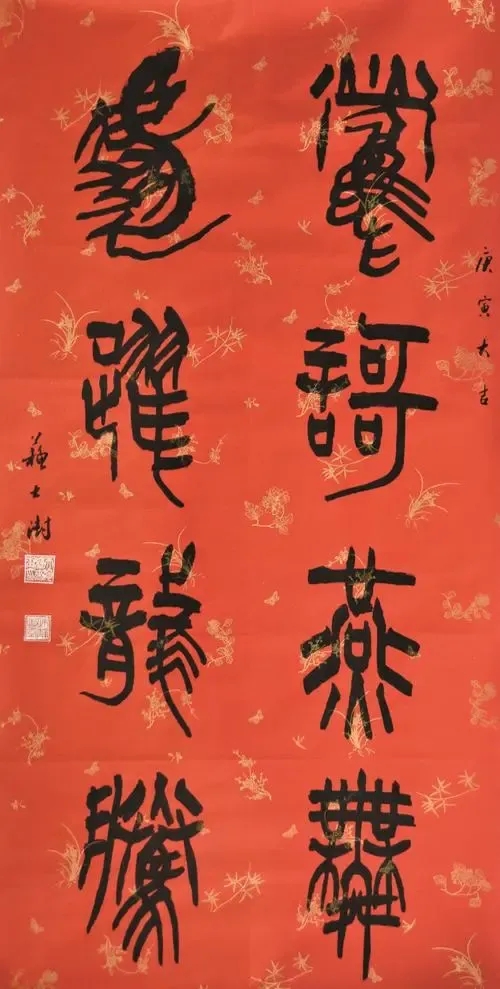 庚寅大吉
鶯謌燕舞
虎躍龍騰
蘇士澍